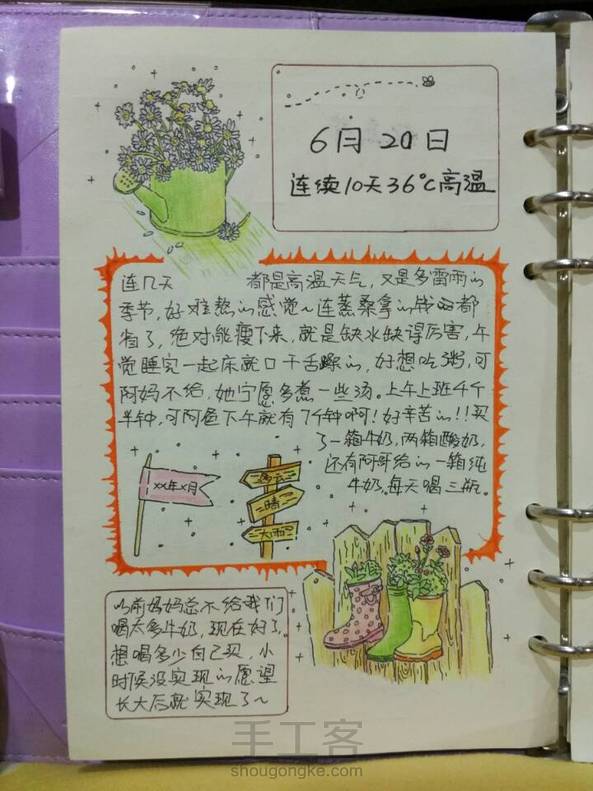 6月20日
连续10天36℃高温
连几天 都是高温天气，又是多雷雨的
季节，好难熬的感觉~连蒸桑拿的钱都
省了，绝对能瘦下来，就是缺水缺得厉害，午
觉睡完一起床就口干舌躁的，好想吃粥，可
阿妈不给，她宁愿多煮一些汤。上午上班4个
半钟，可阿鱼下午就有7个钟啊！好辛苦的！！买
了一箱牛奶，两箱酸奶，
还有阿哥给的一箱纯
牛奶。每天喝三瓶。
XX年X月
雨
晴
大雨
以前妈妈总不给我们
喝太多牛奶，现在好了，
想喝多少自己买，小
时候没实现的愿望
长大后就实现了~
手工客
shougongke.com